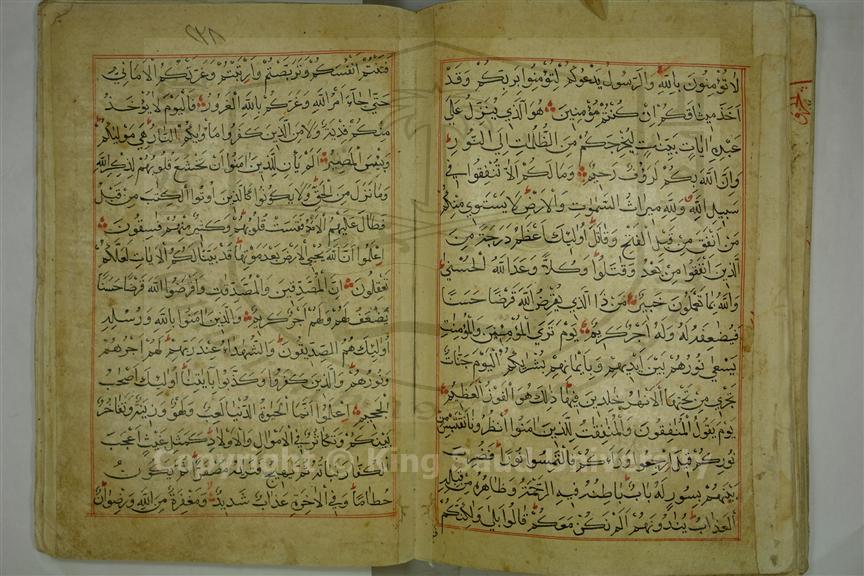 لا تؤمنون بالله والرسول يدعوكم لتؤمنوا بربكم وقد
اخذ ميثاقكم ان كنتم مؤمنين هو الذي ينزل على
عبده ايات بينات ليخرجكم من الظلمات الى النور
وان الله بكم لرؤف رحيم وما لكم الا تنفقوا في
سبيل الله ولله ميراث السموات والارض لا يستوى منكم
من انفق من قبل الفتح وقاتل اولئك اعظم درجة من
الذين انفقوا من بعد وقتلوا وكلا وعد الله الحسنى
والله بما تعملون خبير من ذا الذي يقرض الله قرضا حسنا
فيضعفه له وله اجر كريم يوم ترى المؤمنين والمؤمنت
يسعى نورهم بين ايديهم وبايمانهم بشراكم اليوم جنات
تجري من تحتها الانهر خلدين فيها ذلك هو الفوز العظيم
يوم يقول المنفقون والمنفقت للذين امنوا انظرونا نقتبس من
نوركم قيل ارجعوا وراءكم فالتمسوا نورا فضرب
بينهم بسور له باب باطنه فيه الرحمة وظاهره من قبله
العذاب ينادونهم الم نكن معكم قالوا بلى ولكنكم
٢٣٨
فتنتم انفسكم وتربصتم وارتبتم وغرتكم الاماني
حتى جاء امر الله وغركم بالله الغرور فاليوم لا يؤخذ
منكم فدية ولا من الذين كفروا ماويكم النار هي موليكم
وبئس المصير الم يان للذين امنوا ان تخشع قلوبهم لذكر الله
وما نزل من الحق ولا يكونوا كالذين اوتوا الكتب من قبل
فطال عليهم الامد فقست قلوبهم وكثير منهم فسقون
اعلموا ان الله يحيي الارض بعد موتها قد بينا لكم الايات لعلكم
تعقلون ان المصدقين والمصدقات واقرضوا الله قرضا حسنا
يضعف لهم ولهم اجر كريم والذين امنوا بالله ورسله
اولئك هم الصديقون والشهداء عند ربهم لهم اجرهم
ونورهم والذين كفروا وكذبوا بايتنا اولئك اصحاب
الجحيم اعلموا انما الحيوة الدنيا لعب ولهو وزينة وتفاخر
بينكم وتكاثر في الاموال والاولاد كمثل غيث اعجب
الكفار نباته ثم يهيج فتريه مصفرا ثم يكون
حطاما وفي الاخرة عذاب شديد ومغفرة من الله ورضوان
Copyright © King Saud University